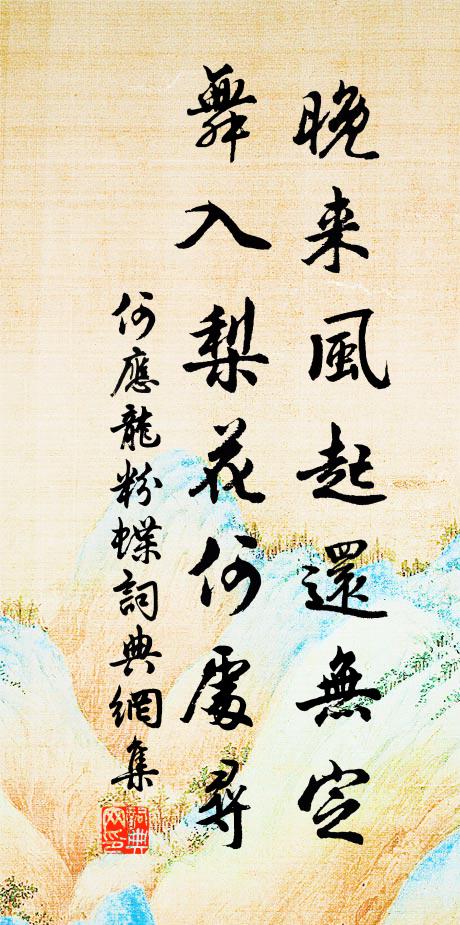 晚来風起還無定
舞入梨花何處尋
何應龍粉蝶詞典網集
詞典網印